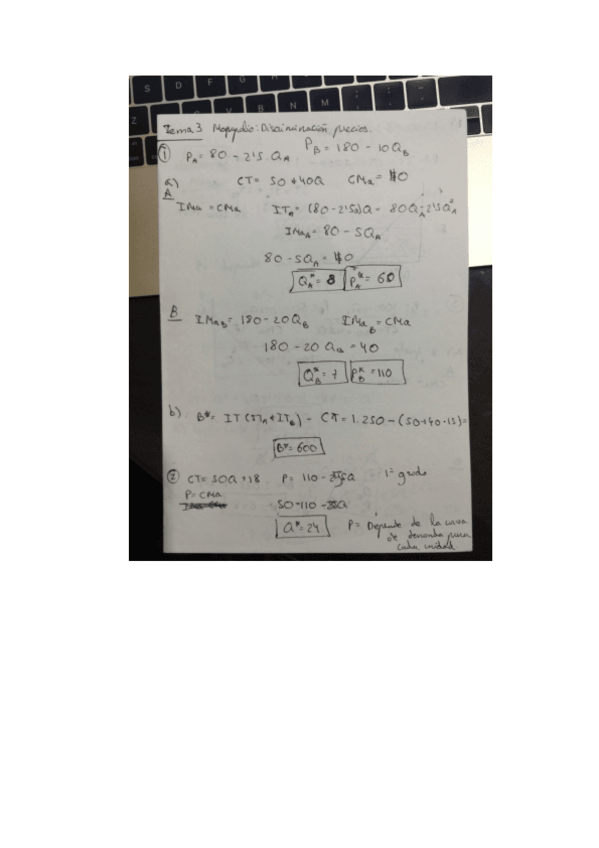 Tema 3 Monopolio: Discriminación precios.
① PA = 80 - 2'5 QA PB = 180 - 10QB
a) CT = 50 + 40Q CMa = 40
A
IMa = CMa ITA = (80 - 2'5Q)Q = 80QA - 2'5QA²
IMaA = 80 - 5QA
80 - 5QA = 40
QA* = 8 PA* = 60
B IMaB = 180 - 20QB IMaB = CMa
180 - 20QB = 40
QB* = 7 PB* = 110
b) B* = IT (ITA + ITB) - CT = 1.250 - (50+40·15) =
B* = 600
② CT = 50Q + 18 P = 110 - Q 1º grado
P = CMa
50 = 110 - Q
Q* = 24 P = Depende de la curva
de demanda para
cada unidad